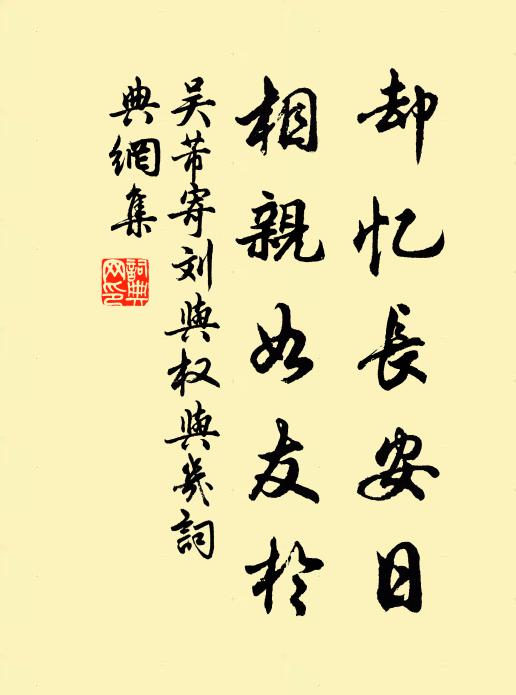 却忆長安日
相親如友於
吴芾寄刘與权與幾詞
典網集
詞典
网印